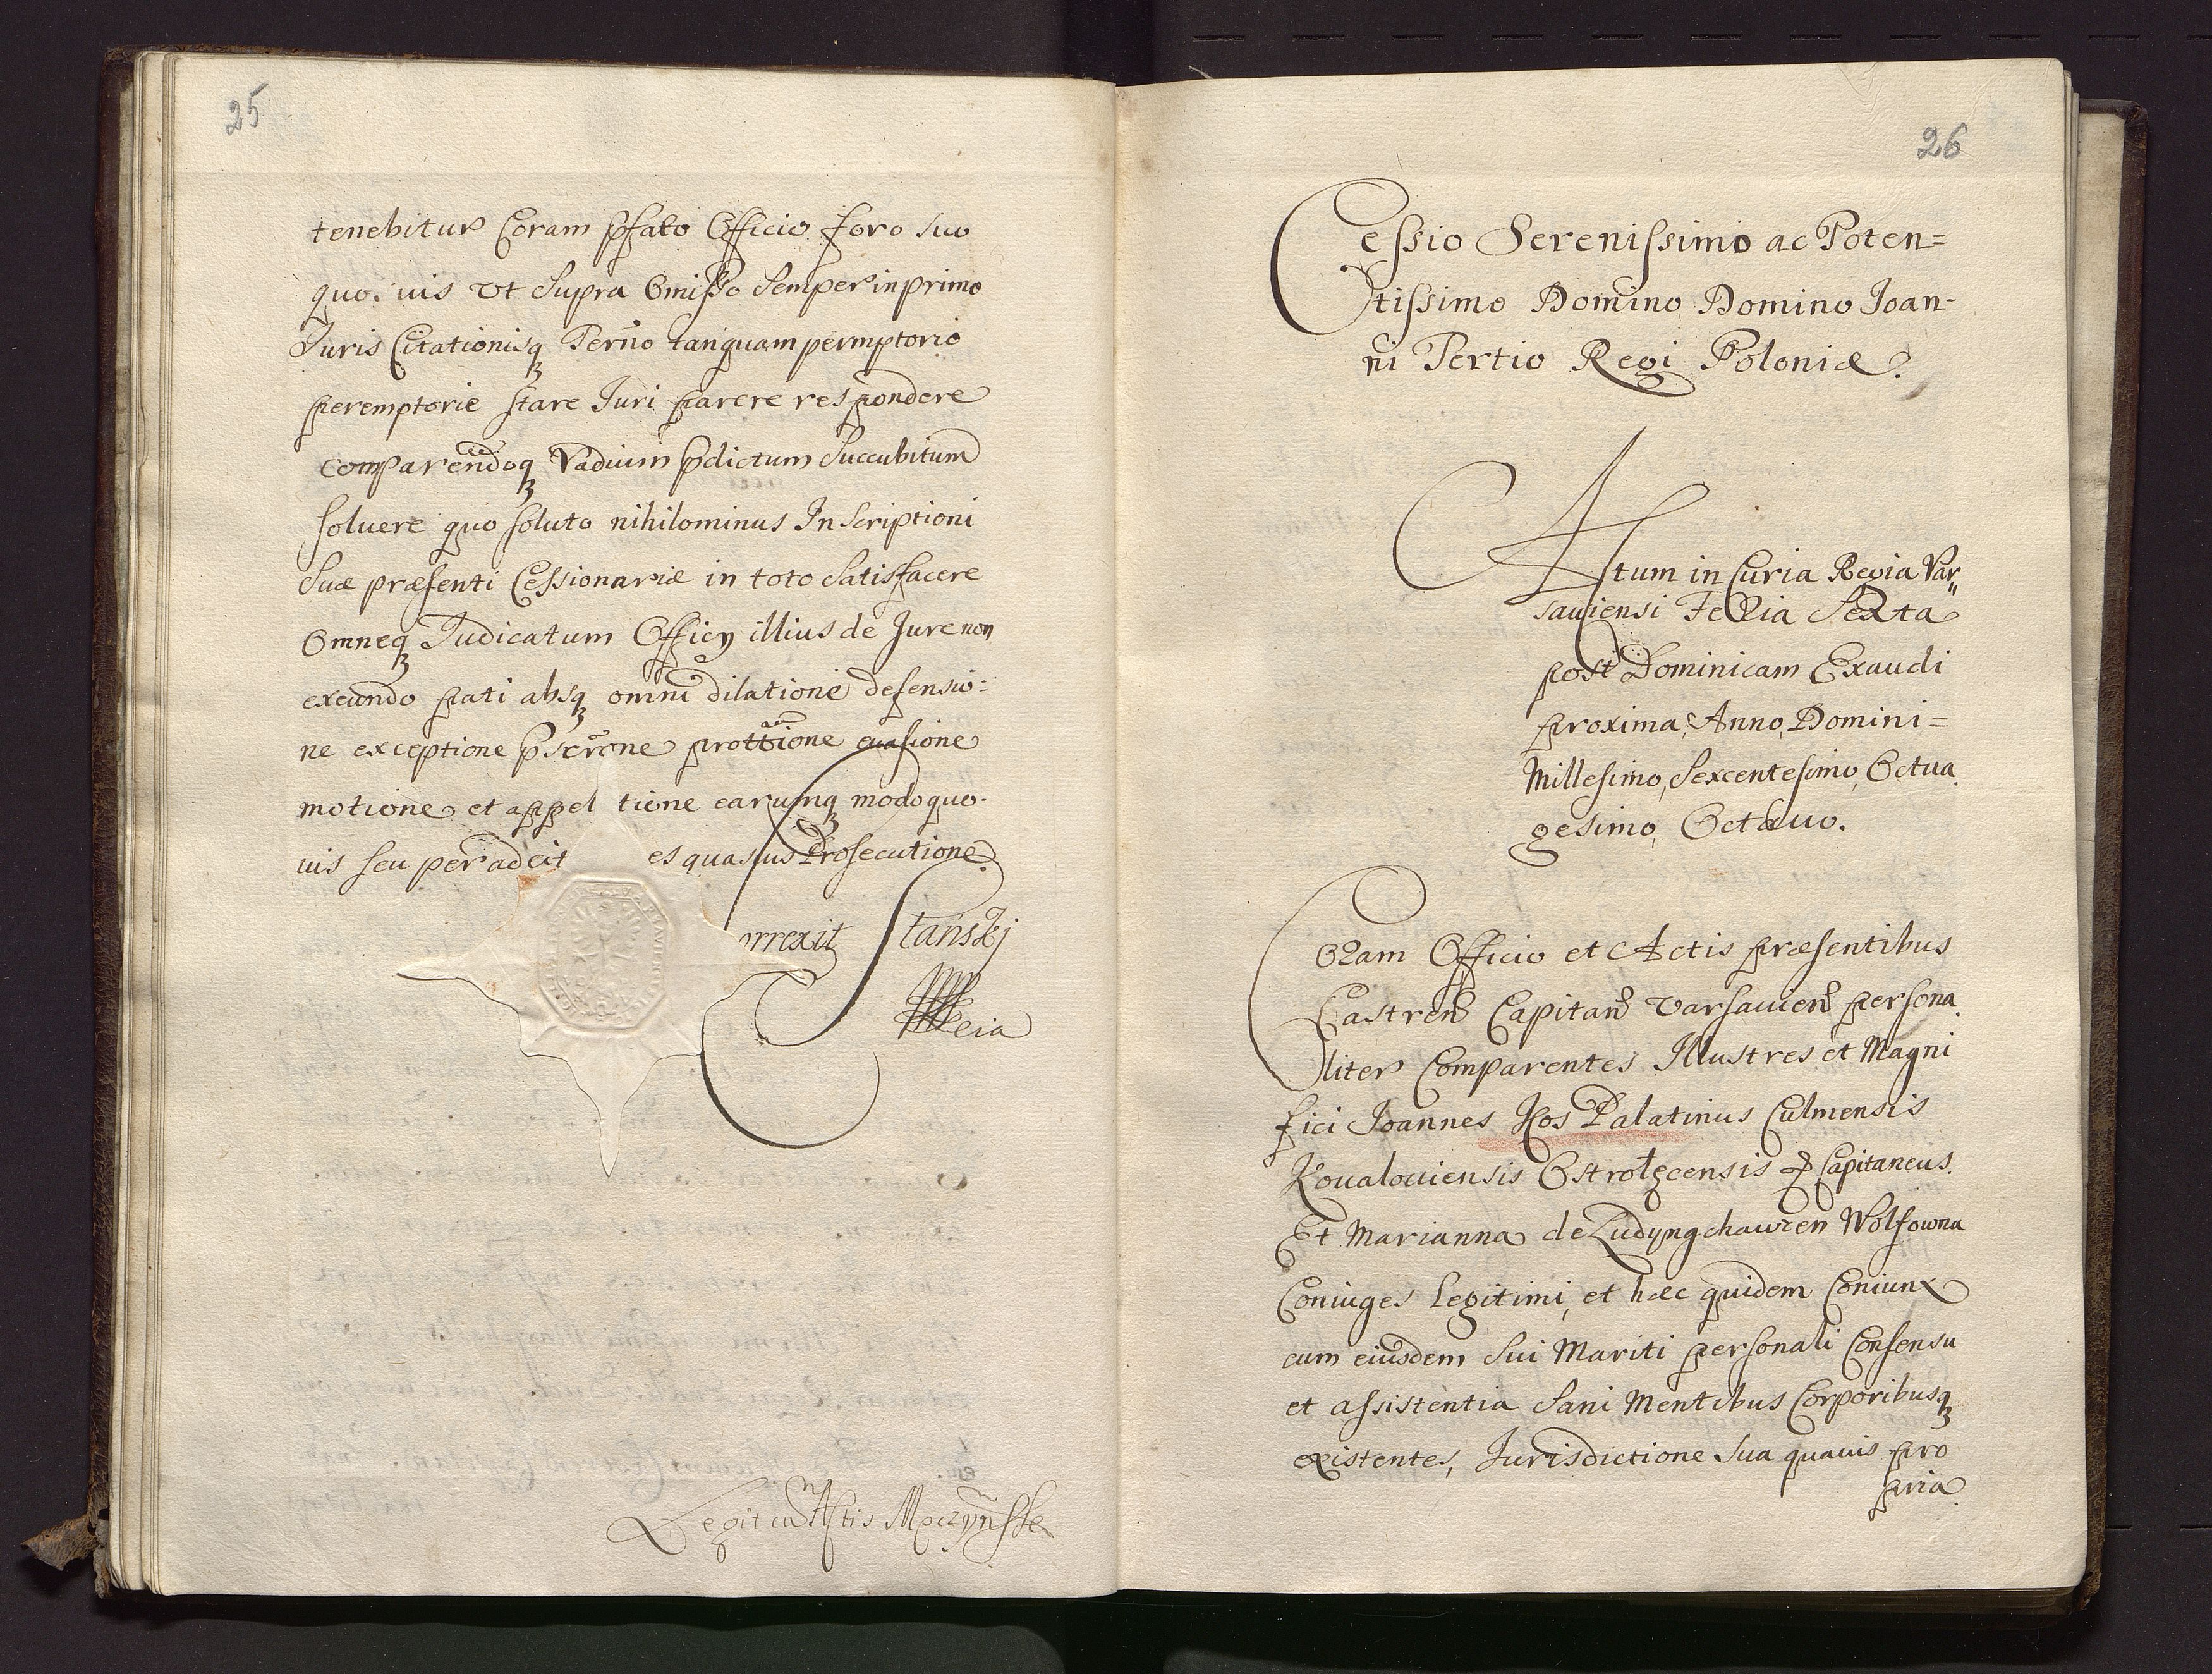 25
tenebitur Coram pfato Officio foro suo
quo. uis vt supra Omisso semper in primo
Juris Citationisq Termo tanquam permptorio
peremptorie stare Juri parere respondere
comparendoq Vadium pdictum succubitum
soluere quo soluto nihilominus Inscriptioni
suæ præsenti Cessionariæ in toto satisfacere
Omneq Judicatum Officij illius de Jure non
exeundo pati absq omni dilatione defensio=
ne exceptione evasione
motione et appel tione earumq modoquo-
uis seu per adcit es quasuis Prosecutione.
orrexit Stanski
Legit cum Actis
26
Cessio Serenissimo ac Poten=
tissimo Domino Domino Ioan-
ni Tertio Regi Poloniæ.
Actum in Curia Regia Var„
sauiensi Feria Sexta
post Dominicam Exaudi
proxima, Anno, Domini=
Millesimo, Sexcentesimo, Octua
gesimo, Octauo.
Coram Officio et Actis præsentibus
Castren Capitan Varsauien persona
liter Comparentes Illustres et Magni
fici Joannes Kos Palatinus Culmensis
Kovaloviensis Ostrolęcensis & Capitaneus.
Et Marianna de Ludyngchawzen Wolfowna
Coniuges legitimi, et hæc quidem Coniunx
cum eiusdem sui Mariti personali Consensu
et assistentia sani Mentibus Corporibusq
existentes, Jurisdictione sua quauis pro
pria